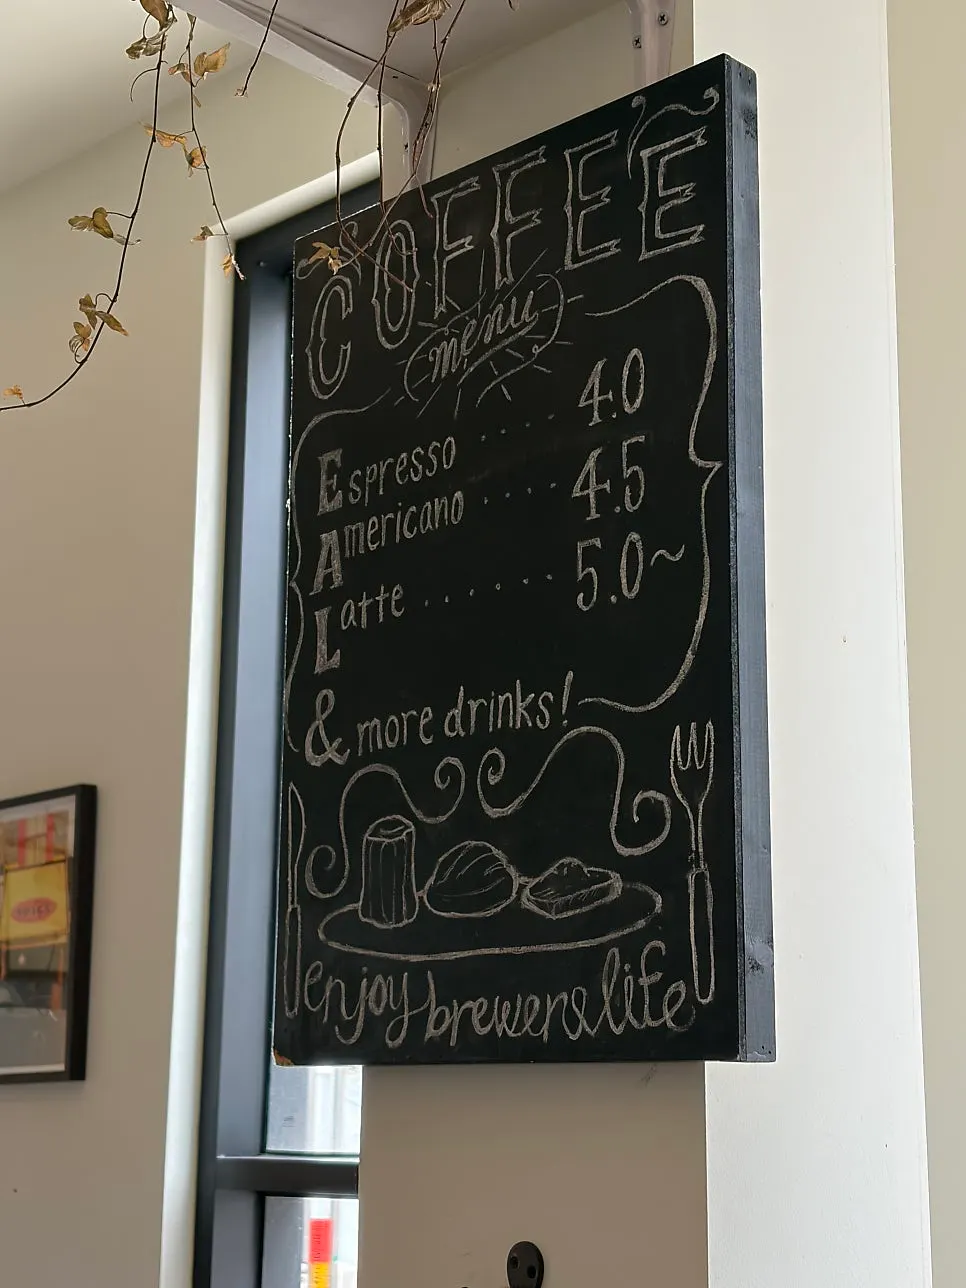 COFFEE
menu
Espresso .... 4.0
Americano .... 4.5
Latte ...... 5.0~
& more drinks!
enjoy brewer&life